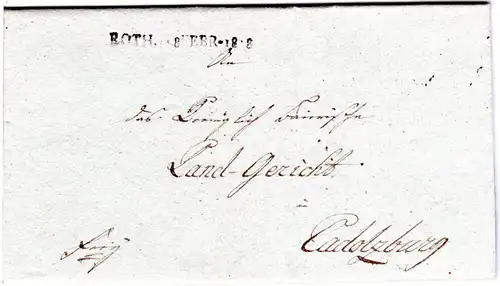 ROTH. 8 FEBR. 18 8
An
das Königlich Bairische
Land-Gericht
in
Cadolzburg
frey